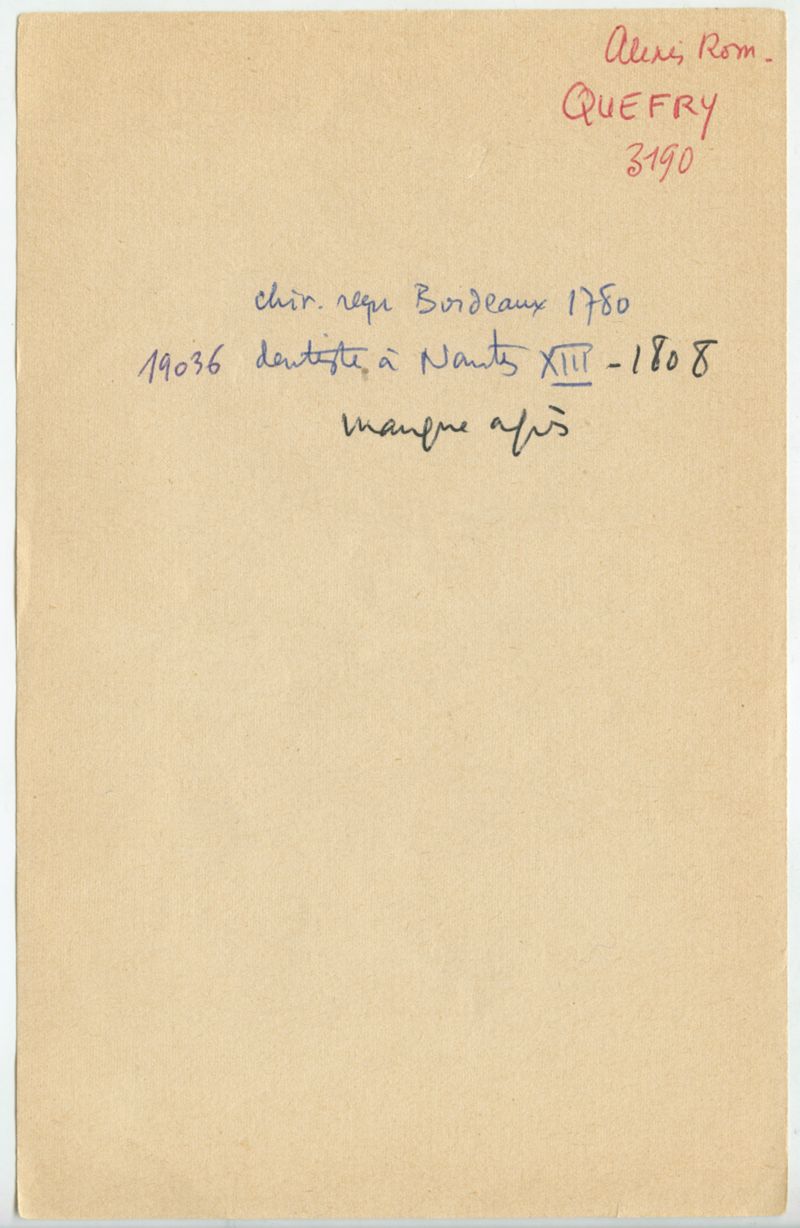 Alexis Rom.
QUEFRY
3190
chir. reçu Bordeaux 1780
19036 dentiste à Nantes XIII - 1808
manque après